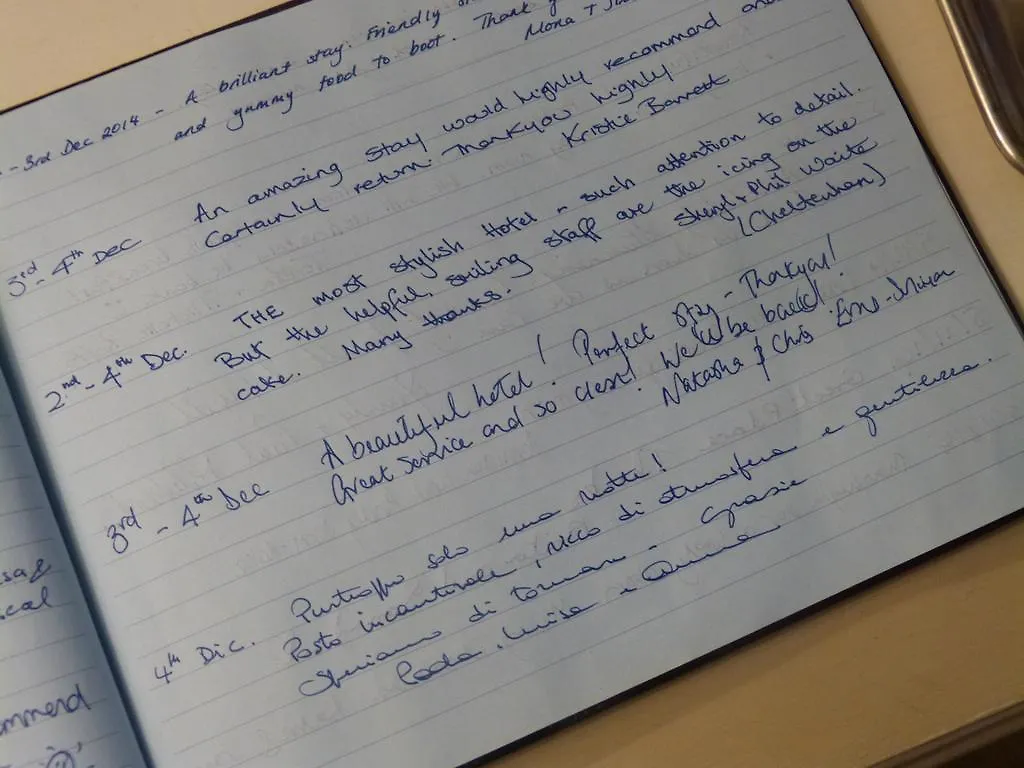 - 3rd Dec 2014 - A brilliant stay. Friendly
and yummy food to boot. Thank
Mona +
3rd - 4th Dec An amazing stay would highly recommend and
Certainly return. Thankyou highly
Kristie Barrett
2nd - 4th Dec. THE most stylish Hotel - such attention to detail.
But the helpful, smiling staff are the icing on the
cake. Many thanks. Sheryl + Phil Waite
(Cheltenham)
3rd - 4th Dec A beautiful hotel! Perfect stay - Thankyou!
Great service and so clean! We'll be back!
Natasha & Chris
4th Dic. Purtroppo solo una notte!
Posto incantevole, ricco di atmosfera e gentilezza.
Speriamo di tornare - Grazie
Paola, Luisa e
sage
ical
mmend